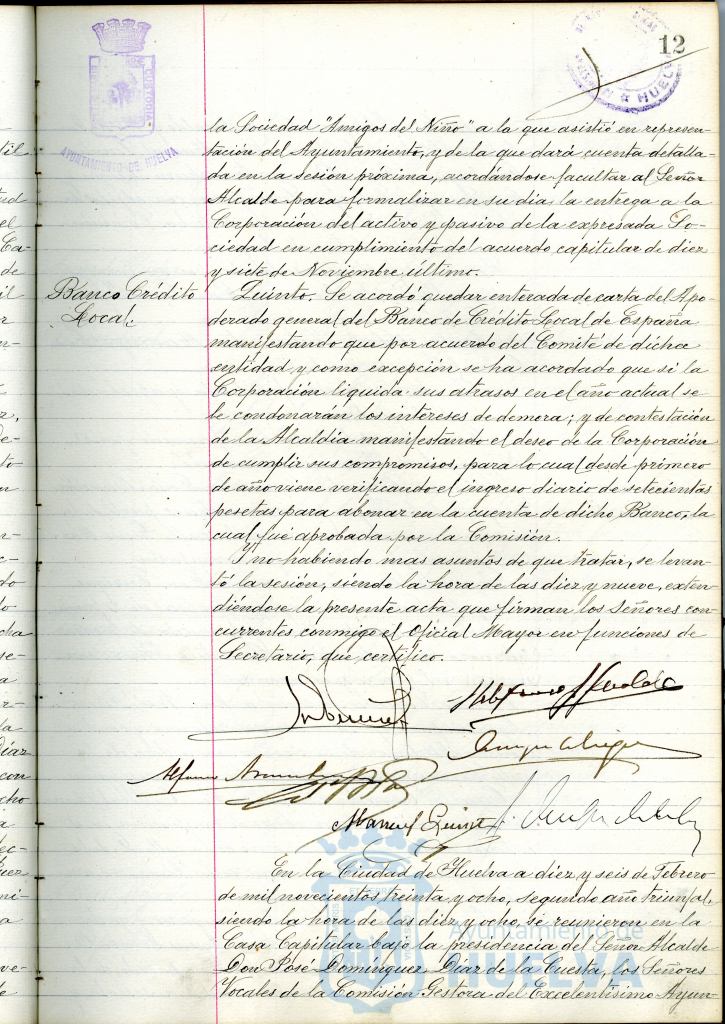 12
AYUNTAMIENTO DE HUELVA
HUELVA
la Sociedad "Amigos del Niño" a la que asistió en represen-
tación del Ayuntamiento, y de la que dará cuenta detalla-
da en la sesión próxima, acordándose facultar al Señor
Alcalde para formalizar en su dia, la entrega a la
Corporación del activo y pasivo de la expresada So-
ciedad en cumplimiento del acuerdo capitular de diez
y siete de Noviembre último.
Banco Crédito
Local.
Quinto. Se acordó quedar enterada de carta del Apo-
derado general del Banco de Crédito Local de España
manifestando que por acuerdo del Comité de dicha
entidad y como excepción se ha acordado que si la
Corporación liquida sus atrasos en el año actual se
le condonarán los intereses de demora; y de contestación
de la Alcaldía manifestando el deseo de la Corporación
de cumplir sus compromisos, para lo cual desde primero
de año viene verificando el ingreso diario de setecientas
pesetas para abonar en la cuenta de dicho Banco, la
cual fué aprobada por la Comisión.
Y no habiendo mas asuntos de que tratar, se levan-
tó la sesión, siendo la hora de las diez y nueve, exten-
diéndose la presente acta que firman los Señores con-
currentes conmigo el Oficial Mayor en funciones de
Secretario, que certifico.
Alfonso
Manuel
En la Ciudad de Huelva a diez y seis de Febrero
de mil novecientos treinta y ocho, segundo año triunfal,
siendo la hora de las diez y ocho, se reunieron en la
Casa Capitular bajo la presidencia del Señor Alcalde
Don José Domínguez Diaz de la Cuesta, los Señores
Vocales de la Comisión Gestora del Excelentísimo Ayun-
Ayuntamiento de
HUELVA